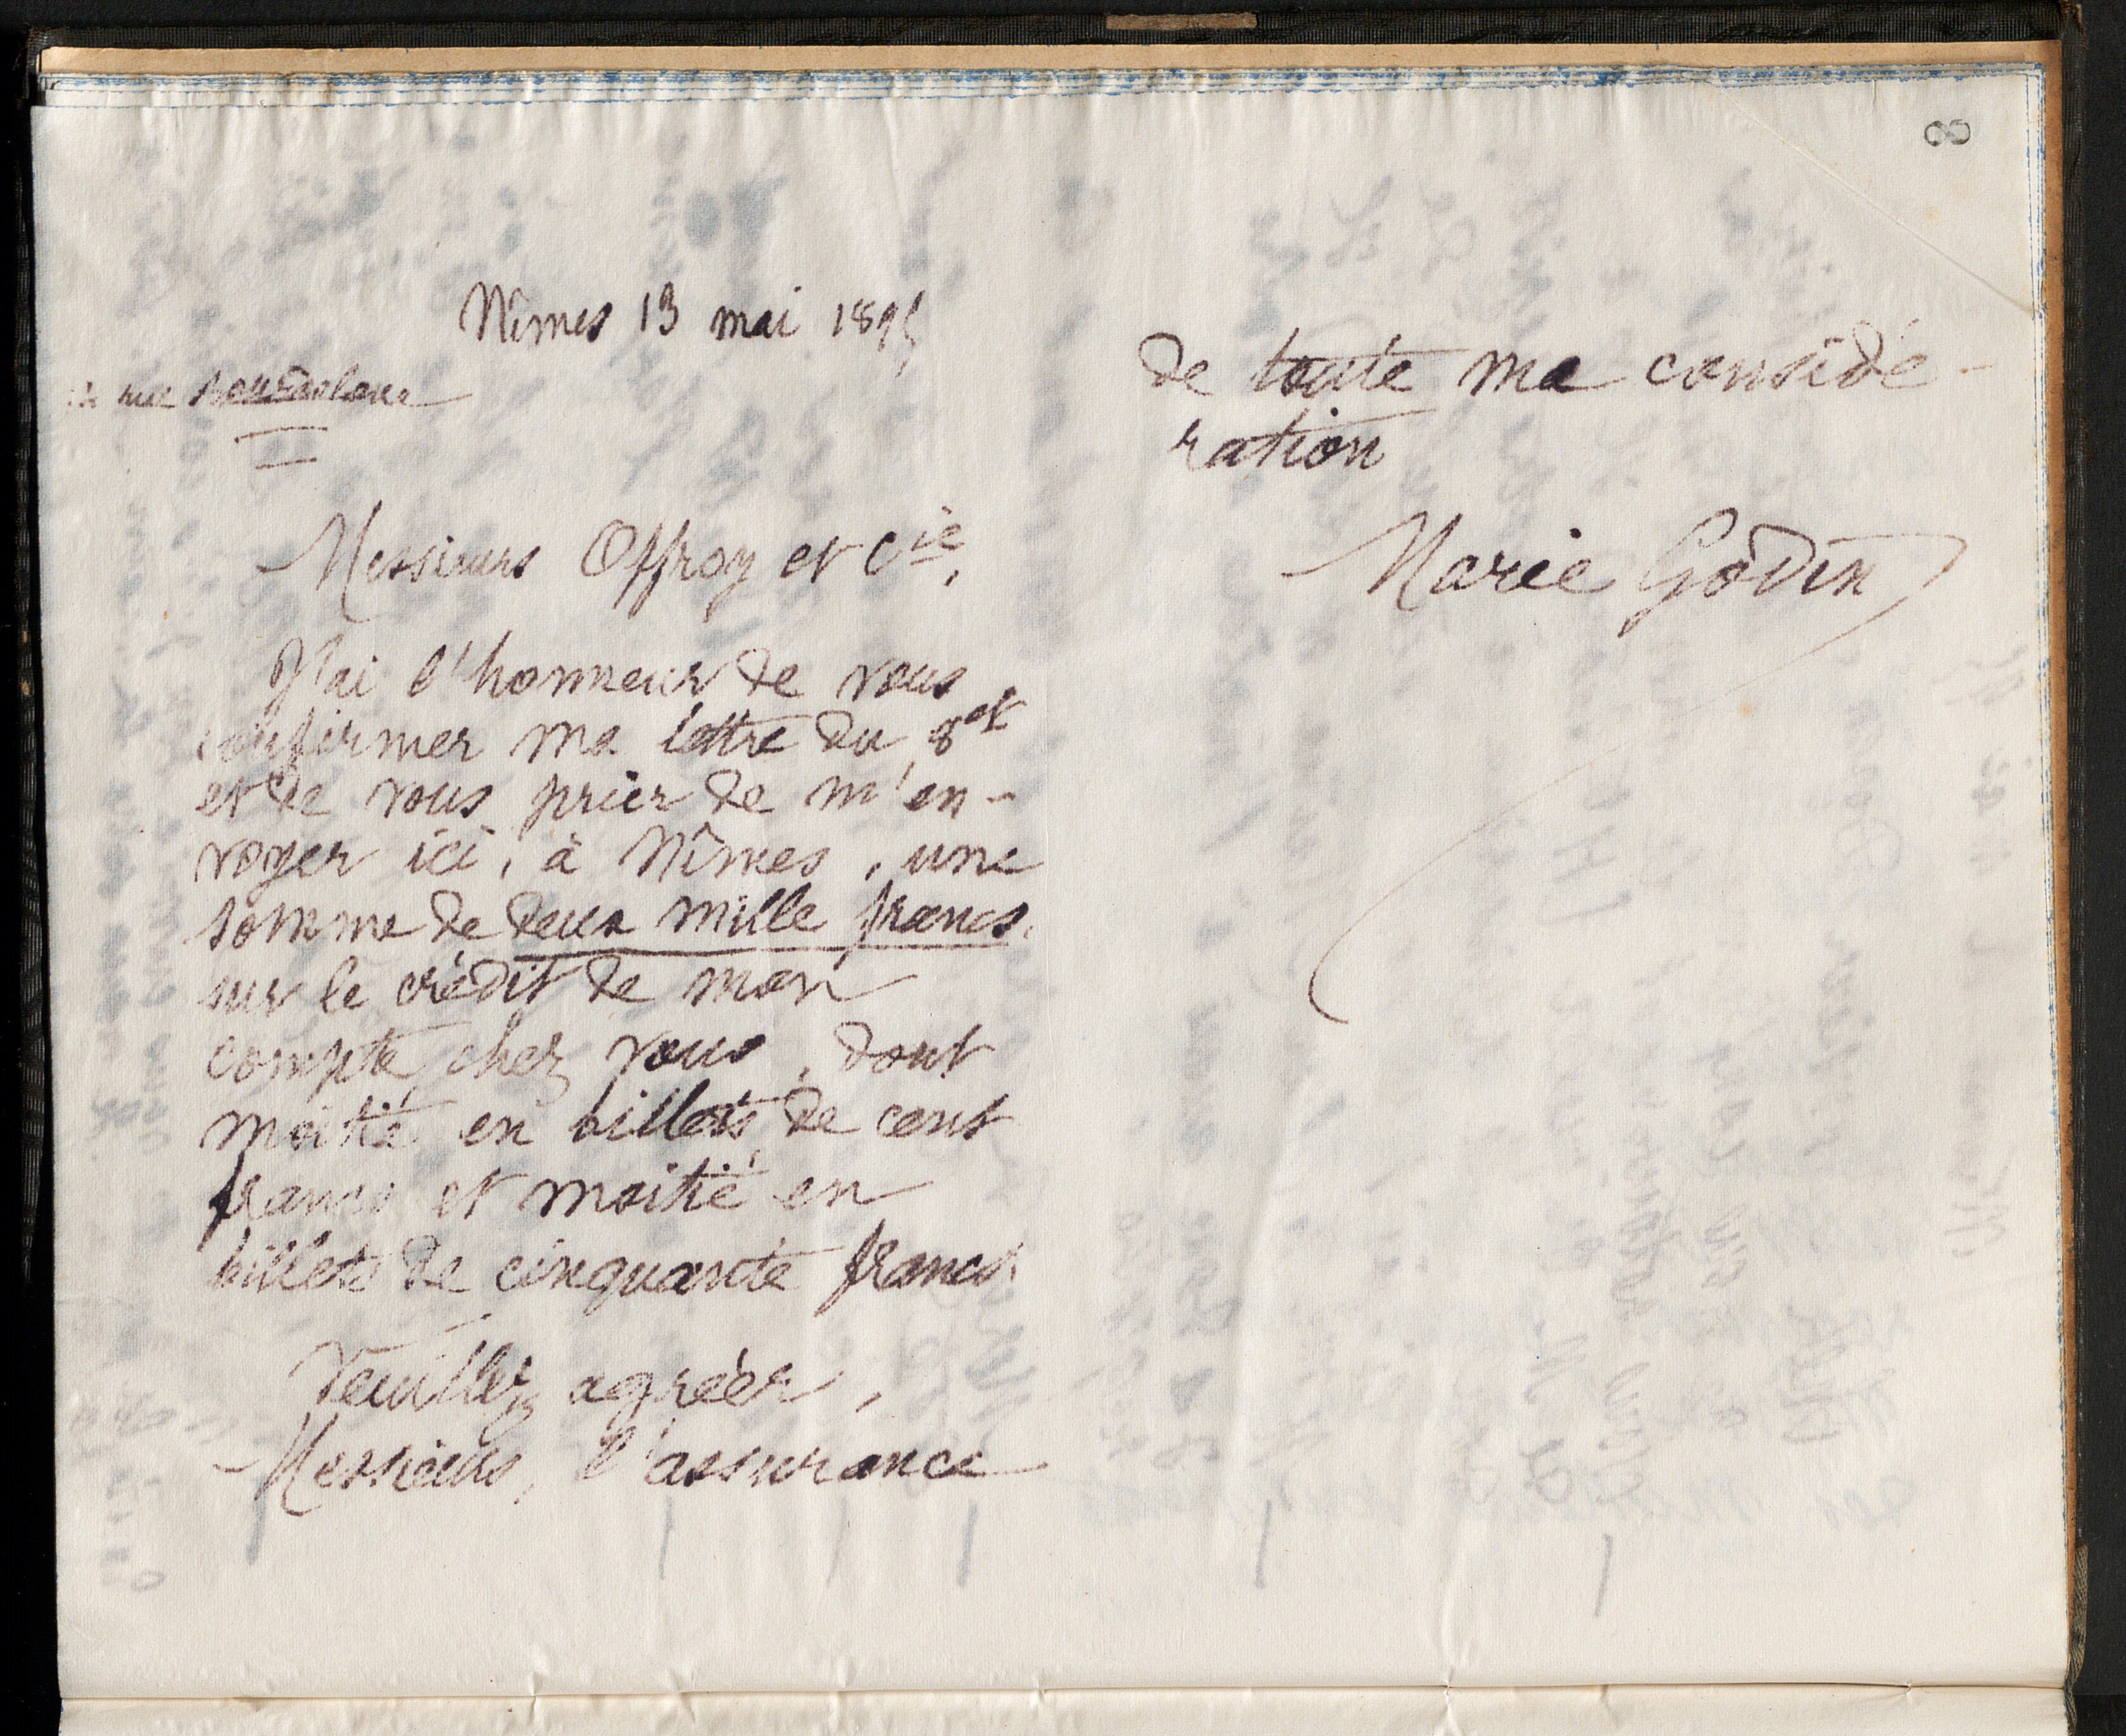 8
Nîmes 13 mai 1895
rue Bourdaloue
Messieurs Offroy et Cie,
J'ai l'honneur de vous
confirmer ma lettre du 8 et
et de vous prier de m'en-
voyer ici, à Nîmes, une
somme de deux mille francs.
sur le crédit de mon
compte chez vous, dont
moitié en billets de cent
francs et moitié en
billets de cinquante francs
Veuillez agréer,
Messieurs, l'assurance
de toute ma considé-
ration
Marie Godin